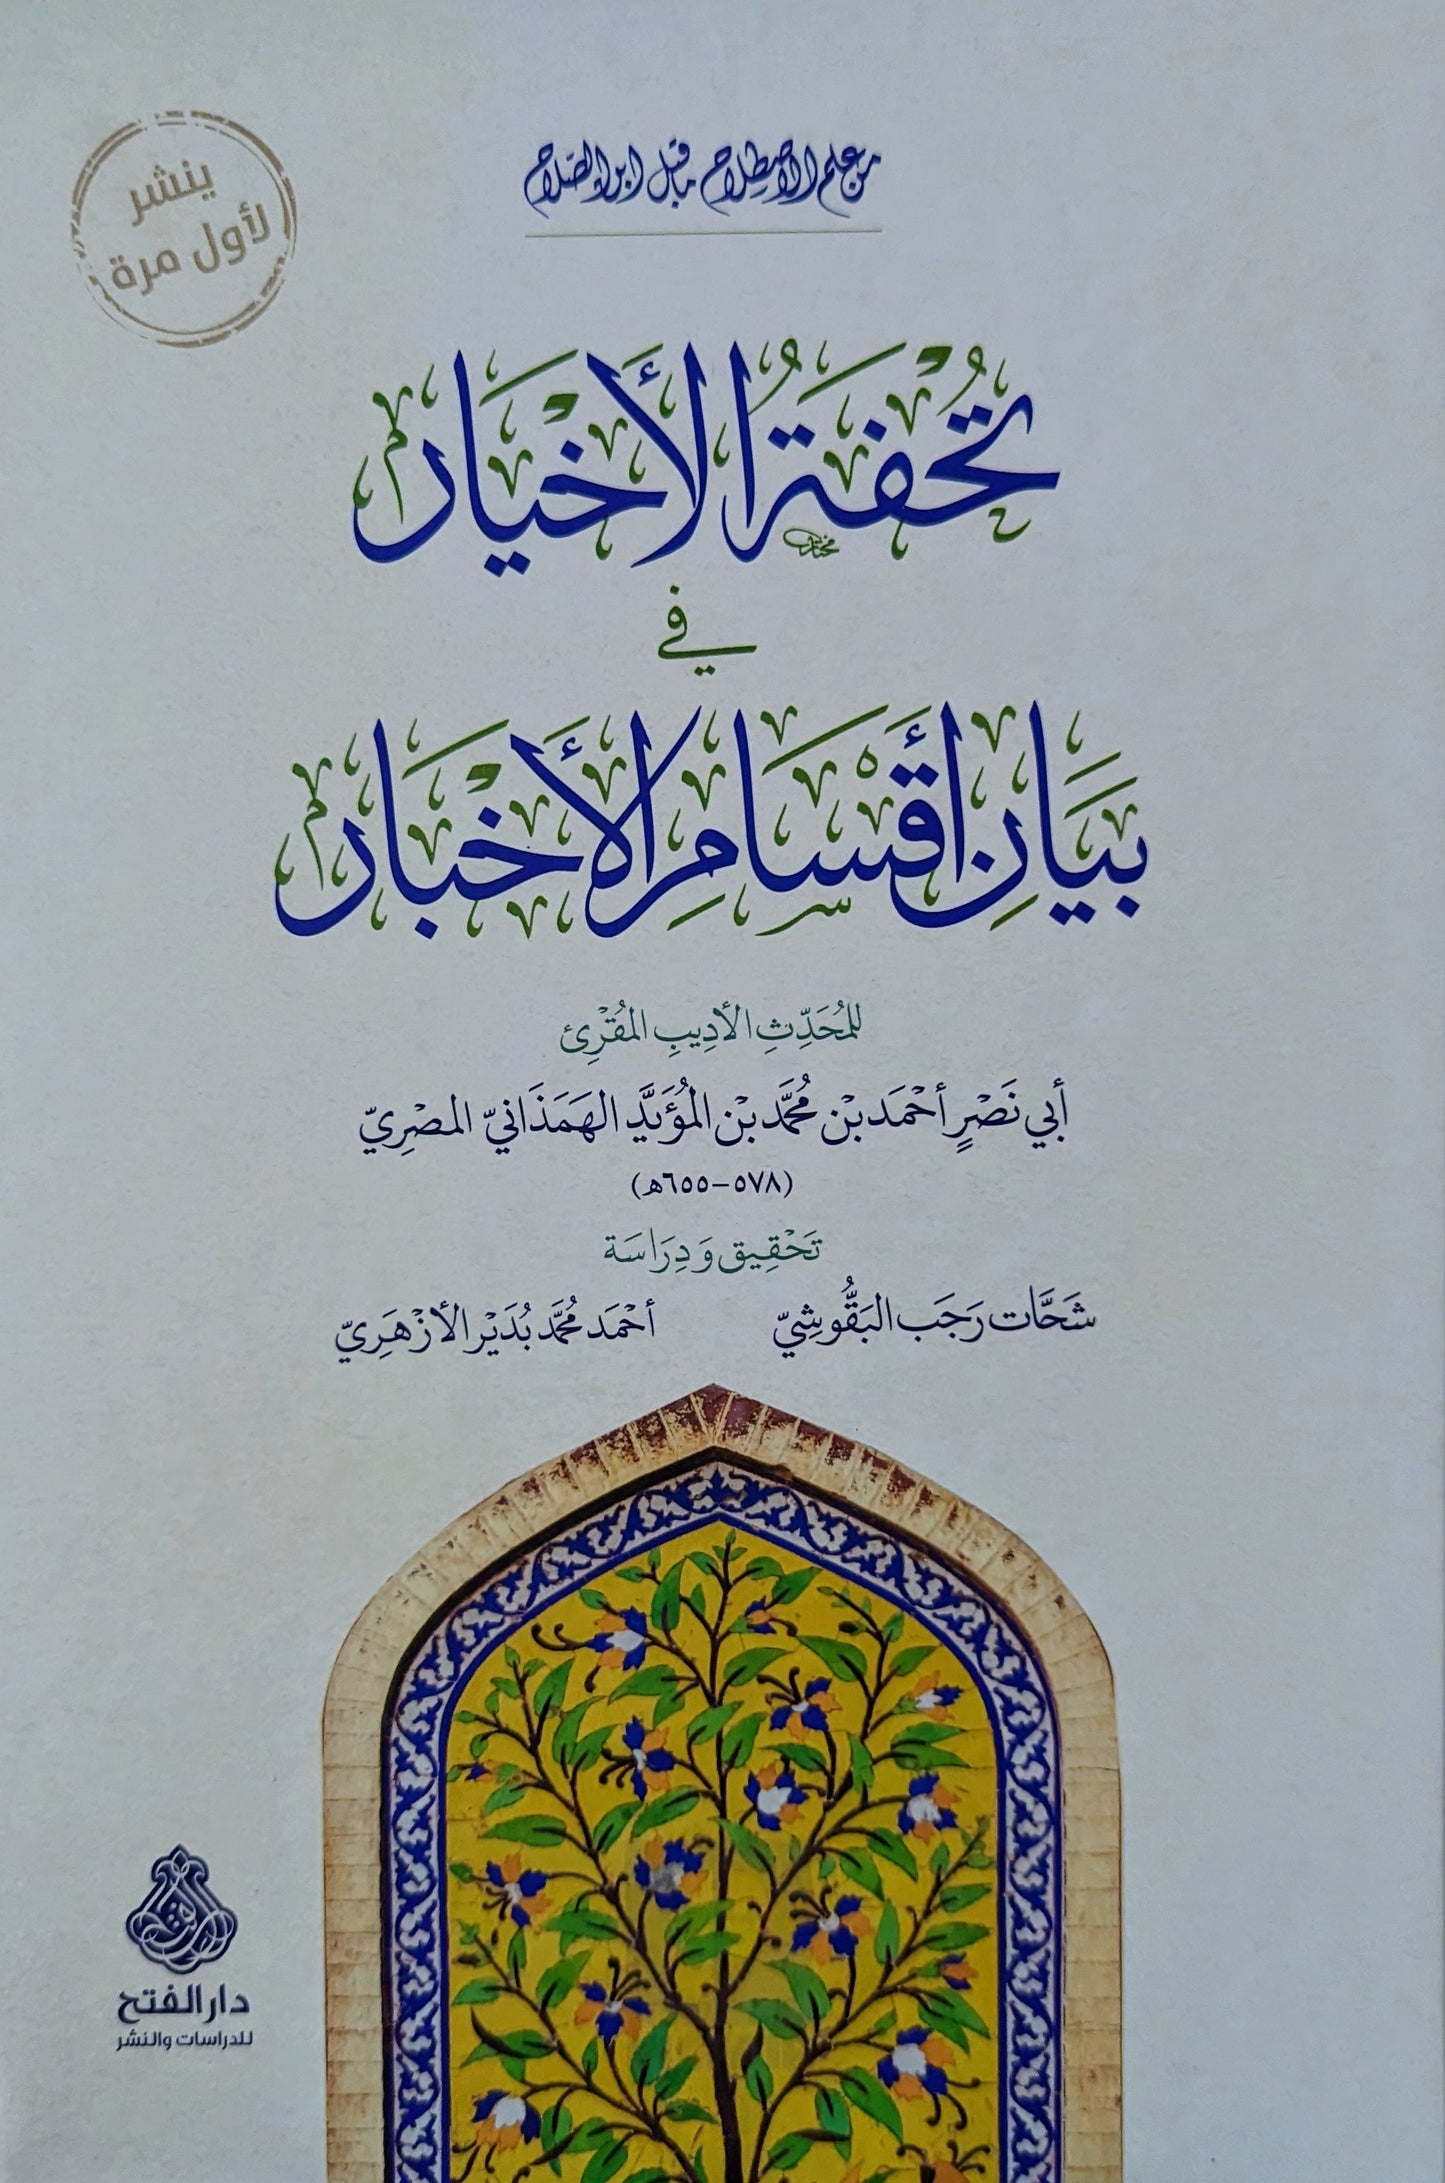 من علم الاصطلاح ما قبل ابن الصّلاح
ينشر
لأول مرة
تُحْفَةُ الأَخْيَار
في
بَيَانِ أَقْسَامِ الأَخْبَار
للمُحَدِّثِ الأَدِيبِ المُقْرِئ
أبي نَصْرٍ أَحْمَد بْن مُحَمَّد بْن المُؤَيَّد الهَمَذَانيّ المصْرِيّ
(٥٧٨-٦٥٥هـ)
تَحْقِيق وَدِرَاسَة
شَحَّات رَجَب البَقُّوشِيّ أَحْمَد مُحَمَّد بُدَيْر الأَزْهَرِيّ
الفتح
دار الفتح
للدراسات والنشر